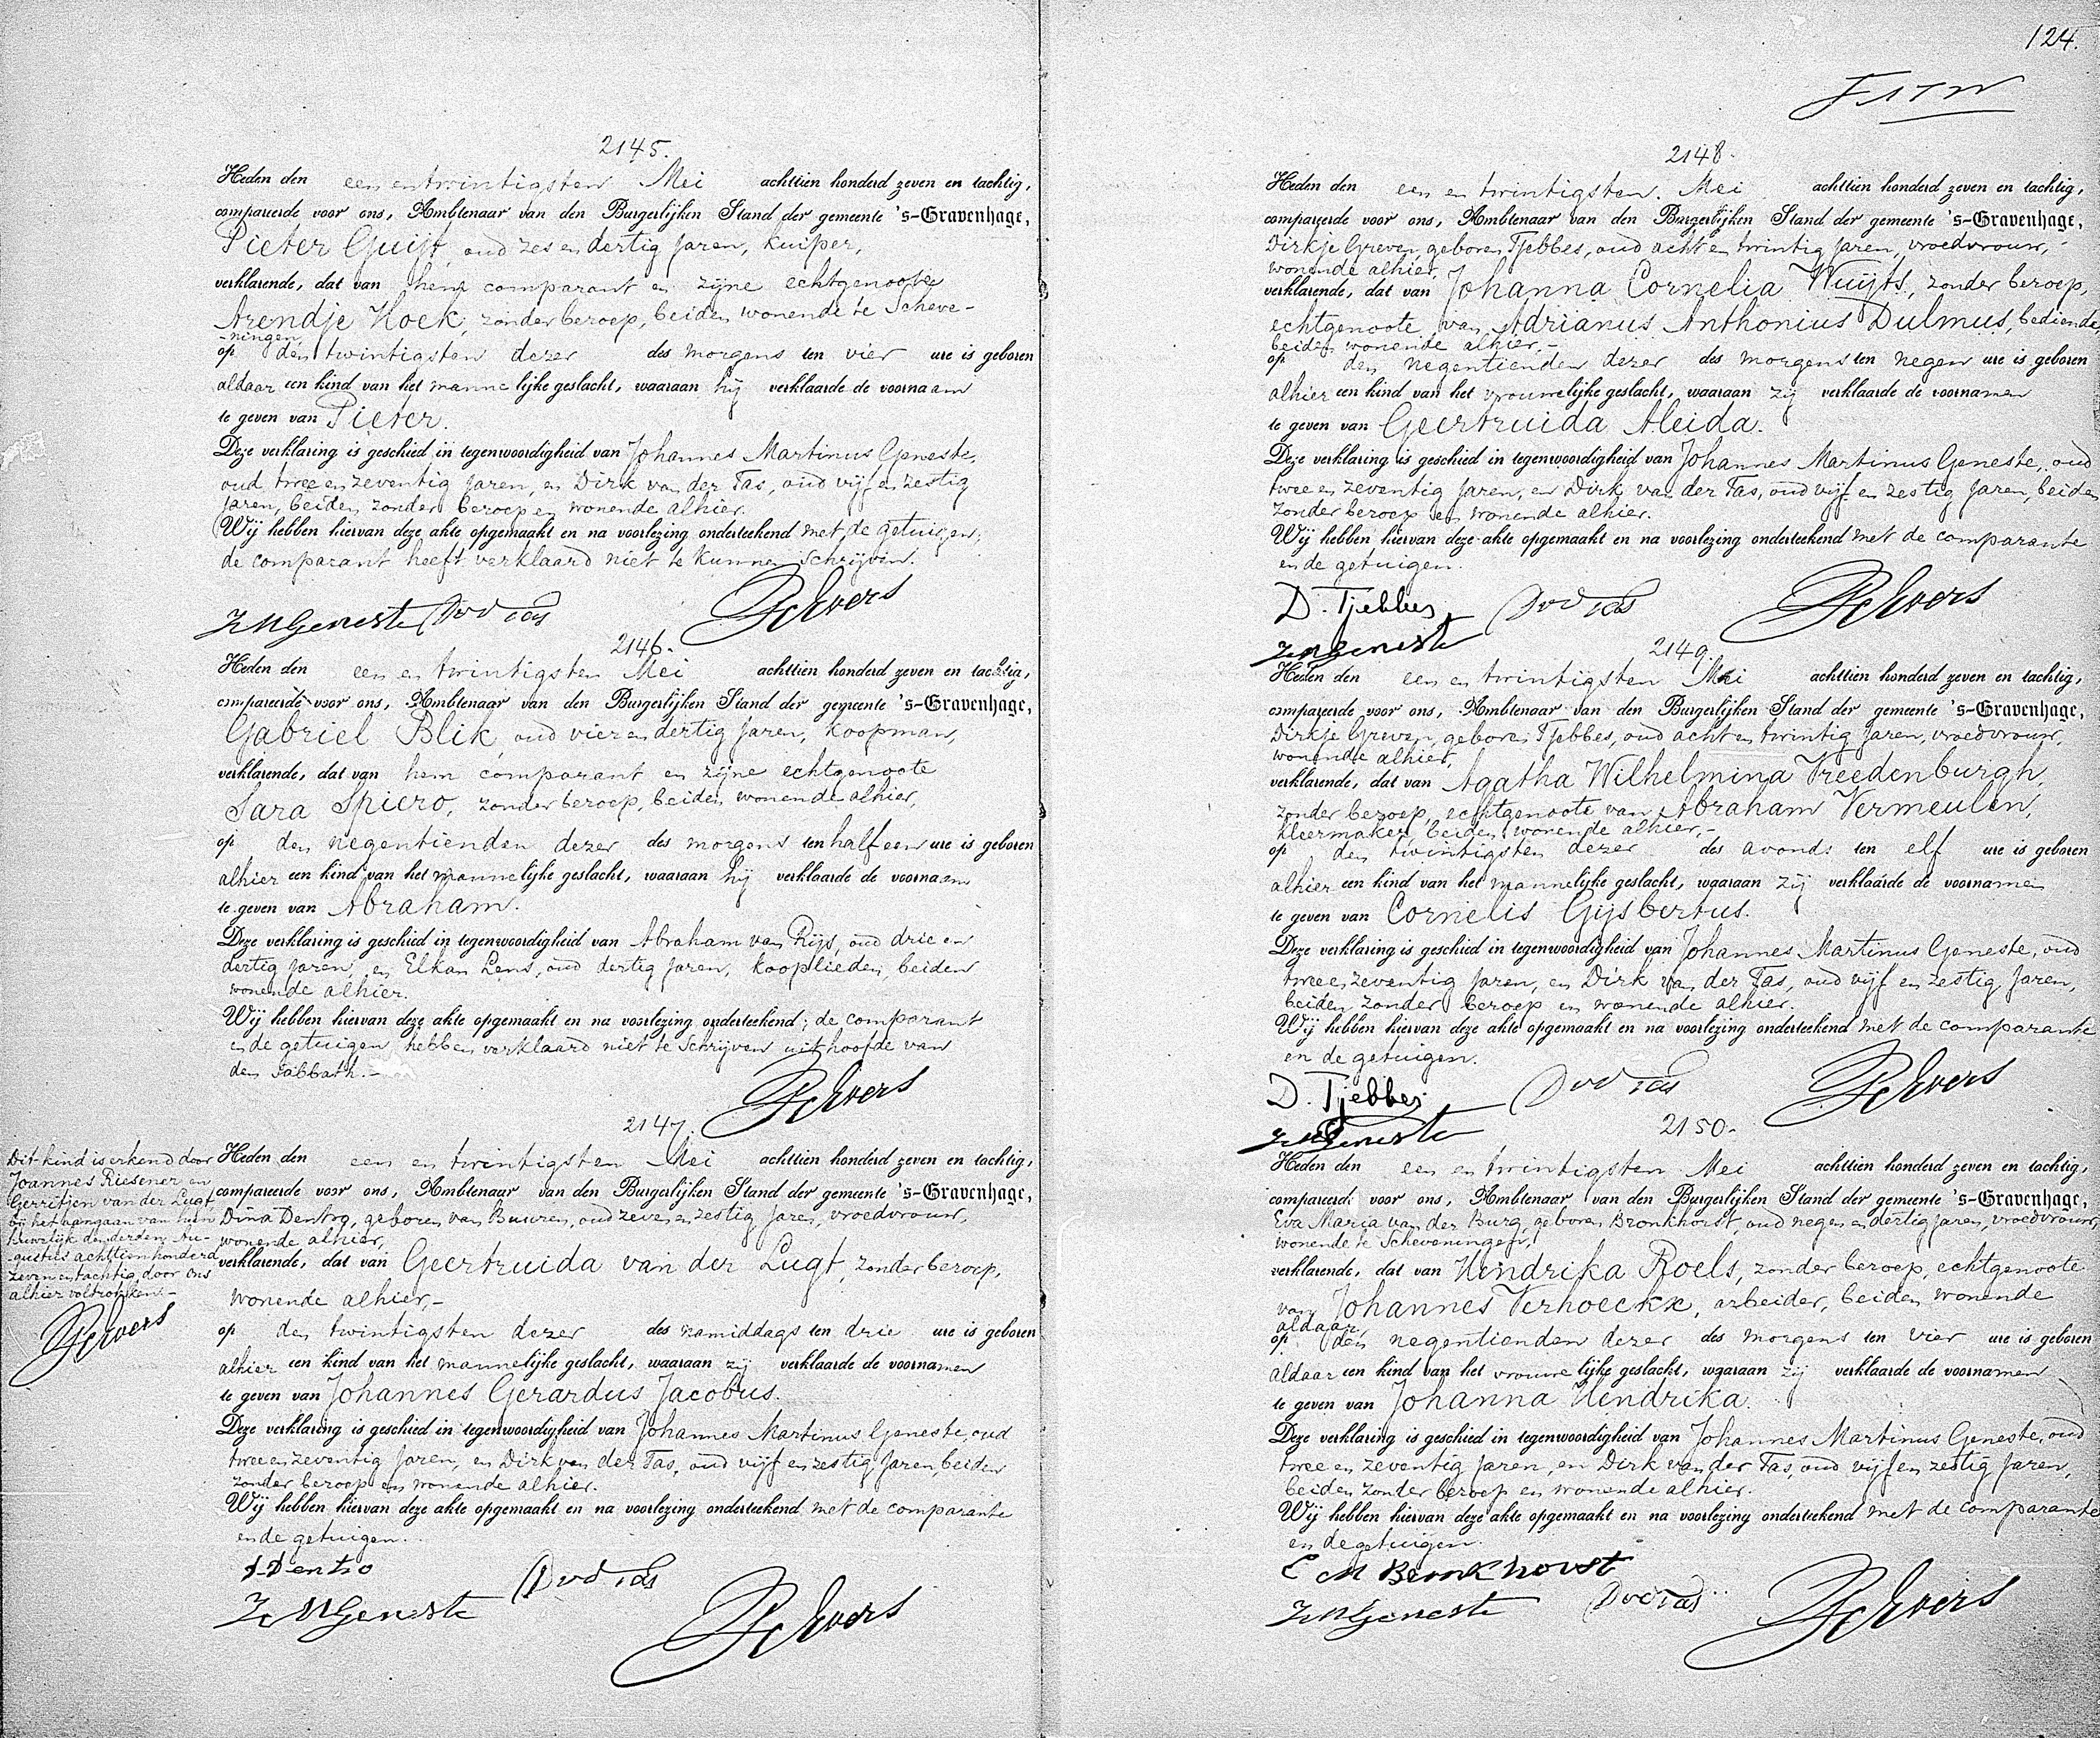 2145.
Heden den een en twintigsten Mei achttien honderd zeven en tachtig,
compareerde voor ons, Ambtenaar van den Burgerlijken Stand der gemeente 's-Gravenhage,
Pieter Guijt, oud zes en dertig jaren, kuiper,
verklarende, dat van hem comparant en zijne echtgenoote
Arendje Hoek, zonder beroep, beiden wonende te Scheve-
-ningen
op den twintigsten dezer des morgens ten vier ure is geboren
aldaar een kind van het mannelijke geslacht, waaraan hij verklaarde de voornaam
te geven van Pieter.
Deze verklaring is geschied in tegenwoordigheid van Johannes Martinus Geneste,
oud twee en zeventig jaren, en Dirk van der Tas, oud vijf en zestig
jaren, beiden zonder beroep en wonende alhier.
Wij hebben hiervan deze akte opgemaakt en na voorlezing onderteekend met de getuigen;
de comparant heeft verklaard niet te kunnen schrijven.
JMGeneste DvdTas
2146.
Heden den een en twintigsten Mei achttien honderd zeven en tachtig,
compareerde voor ons, Ambtenaar van den Burgerlijken Stand der gemeente 's-Gravenhage,
Gabriel Blik, oud vier en dertig jaren, koopman,
verklarende, dat van hem comparant en zijne echtgenoote
Sara Spiero, zonder beroep, beiden wonende alhier,
op den negentienden dezer des morgens ten half een ure is geboren
alhier een kind van het mannelijke geslacht, waaraan hij verklaarde de voornaam
te geven van Abraham.
Deze verklaring is geschied in tegenwoordigheid van Abraham van Rijs, oud drie en
dertig jaren, en Elkan Lens, oud dertig jaren, kooplieden, beiden
wonende alhier.
Wij hebben hiervan deze akte opgemaakt en na voorlezing onderteekend; de comparant
en de getuigen hebben verklaard niet te schrijven uit hoofde van
den Sabbath.-
2147.
Heden den een en twintigsten Mei achttien honderd zeven en tachtig,
compareerde voor ons, Ambtenaar van den Burgerlijken Stand der gemeente 's-Gravenhage,
Dina Dentro, geboren van Buuren, oud zeven en zestig jaren, vroedvrouw,
wonende alhier,
verklarende, dat van Geertruida van der Lugt, zonder beroep,
wonende alhier,-
op den twintigsten dezer des namiddags ten drie ure is geboren
alhier een kind van het mannelijke geslacht, waaraan zij verklaarde de voornamen
te geven van Johannes Gerardus Jacobus.
Deze verklaring is geschied in tegenwoordigheid van Johannes Martinus Geneste, oud
twee en zeventig jaren, en Dirk van der Tas, oud vijf en zestig jaren, beiden
zonder beroep en wonende alhier.
Wij hebben hiervan deze akte opgemaakt en na voorlezing onderteekend met de comparante
en de getuigen.
D Dentro
JMGeneste DvdTas
Dit kind is erkend door
Joannes Riesener en
Gerritjen van der Lugt,
bij het aangaan van hun
huwelijk den derden Au-
-gustus achttien honderd
zeven en tachtig door ons
alhier voltrokken.-
124.
2148.
Heden den een en twintigsten Mei achttien honderd zeven en tachtig,
compareerde voor ons, Ambtenaar van den Burgerlijken Stand der gemeente 's-Gravenhage,
Dirkje Greven, geboren Tjebbes, oud acht en twintig jaren, vroedvrouw,
wonende alhier,
verklarende, dat van Johanna Cornelia Wuijts, zonder beroep,
echtgenoote van Adrianus Anthonius Dulmus, bediende,
beiden wonende alhier,-
op den negentienden dezer des morgens ten negen ure is geboren
alhier een kind van het vrouwelijke geslacht, waaraan zij verklaarde de voornamen
te geven van Geertruida Aleida.
Deze verklaring is geschied in tegenwoordigheid van Johannes Martinus Geneste, oud
twee en zeventig jaren, en Dirk van der Tas, oud vijf en zestig jaren, beiden
zonder beroep en wonende alhier.
Wij hebben hiervan deze akte opgemaakt en na voorlezing onderteekend met de comparante
en de getuigen.
D. Tjebbes DvdTas
JMGeneste
2149.
Heden den een en twintigsten Mei achttien honderd zeven en tachtig,
compareerde voor ons, Ambtenaar van den Burgerlijken Stand der gemeente 's-Gravenhage,
Dirkje Greven, geboren Tjebbes, oud acht en twintig jaren, vroedvrouw,
wonende alhier,
verklarende, dat van Agatha Wilhelmina Vreedenburgh,
zonder beroep, echtgenoote van Abraham Vermeulen,
kleermaker, beiden wonende alhier,-
op den twintigsten dezer des avonds ten elf ure is geboren
alhier een kind van het mannelijke geslacht, waaraan zij verklaarde de voornamen
te geven van Cornelis Gijsbertus.
Deze verklaring is geschied in tegenwoordigheid van Johannes Martinus Geneste, oud
twee en zeventig jaren, en Dirk van der Tas, oud vijf en zestig jaren,
beiden zonder beroep en wonende alhier.
Wij hebben hiervan deze akte opgemaakt en na voorlezing onderteekend met de comparante
en de getuigen.
D. Tjebbes DvdTas
JMGeneste
2150.
Heden den een en twintigsten Mei achttien honderd zeven en tachtig,
compareerde voor ons, Ambtenaar van den Burgerlijken Stand der gemeente 's-Gravenhage,
Eva Maria van der Burg, geboren Bronkhorst, oud negen en dertig jaren, vroedvrouw,
wonende te Scheveningen,
verklarende, dat van Hendrika Roels, zonder beroep, echtgenoote
van Johannes Verhoeckx, arbeider, beiden wonende
aldaar,
op den negentienden dezer des morgens ten vier ure is geboren
aldaar een kind van het vrouwelijke geslacht, waaraan zij verklaarde de voornamen
te geven van Johanna Hendrika.
Deze verklaring is geschied in tegenwoordigheid van Johannes Martinus Geneste, oud
twee en zeventig jaren, en Dirk van der Tas, oud vijf en zestig jaren,
beiden zonder beroep en wonende alhier.
Wij hebben hiervan deze akte opgemaakt en na voorlezing onderteekend met de comparante
en de getuigen.
E M Bronkhorst
JMGeneste DvdTas